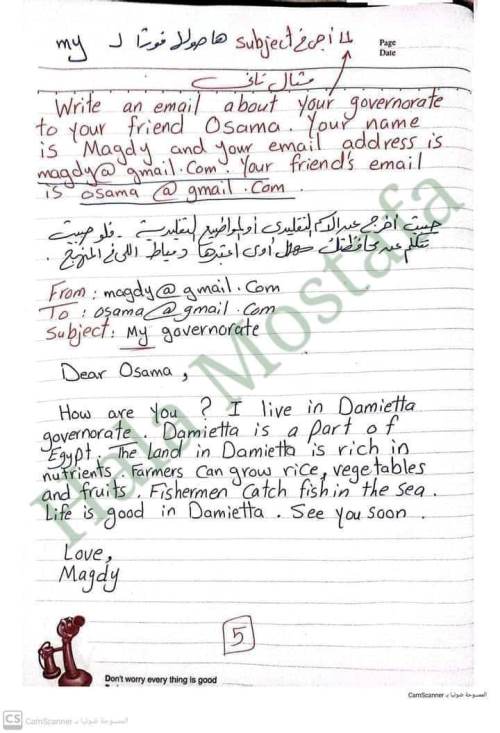 لما أجي في subject هاحولا فورًا لـ my
Page
Date
مثال تاني
Write an email about your governorate
to your friend Osama. Your name
is Magdy and your email address is
magdy@gmail.Com. Your friend's email
is osama@gmail.Com.
حبيت أخرج عن الكلام التقليدي أو المواضيع التقليدية - فلو حبيت
تتكلم عن محافظتك سهل أوي اعتبرها دمياط اللي في المنهج.
From: magdy@gmail.Com
To: osama@gmail.Com
Subject: My governorate
Dear Osama,
How are you? I live in Damietta
governorate. Damietta is a part of
Egypt. The land in Damietta is rich in
nutrients. Farmers Can grow rice, vegetables
and fruits. Fishermen Catch fish in the sea.
Life is good in Damietta. See you soon.
Love,
Magdy
5
Don't worry every thing is good
Hala Mostafa
الممسوحة ضوئيا بـ CamScanner
CS CamScanner الممسوحة ضوئيا بـ